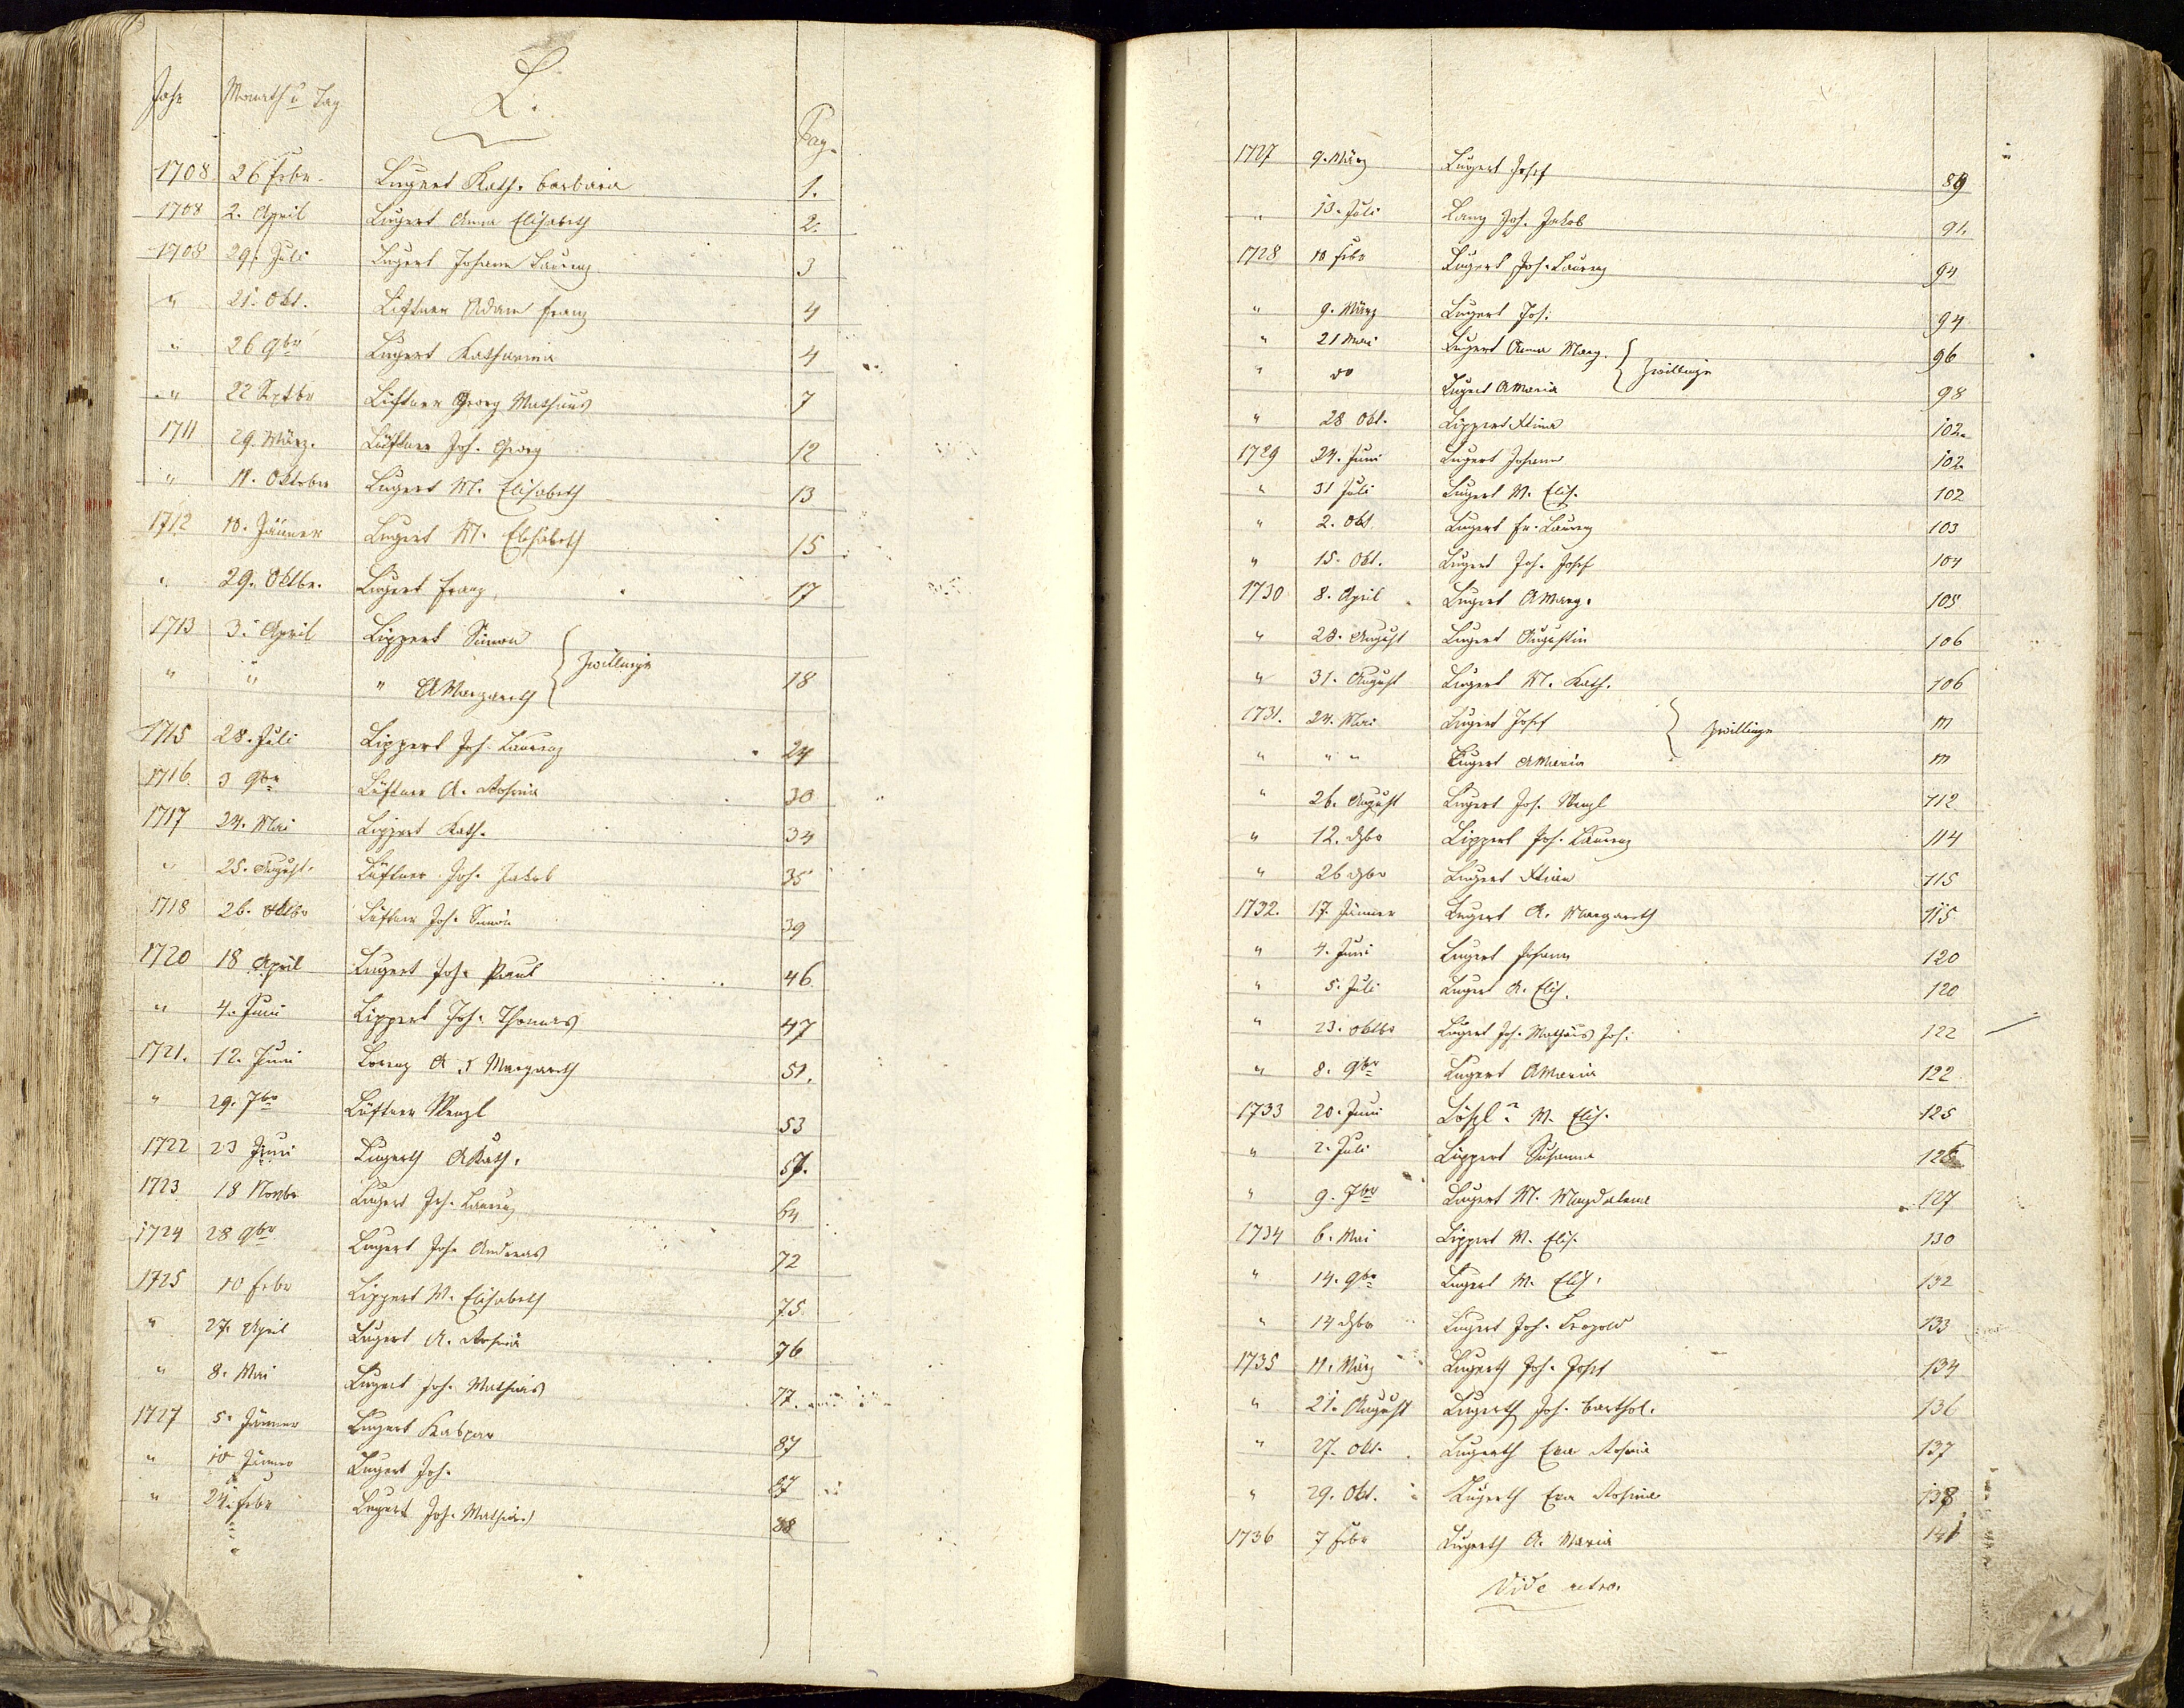 L.
Jahr Monath u Tag Pag.
1708 26 Febr. Lugert Kath. Barbara 1.
1708 2. April Lugert Anna Elisabeth 2.
1708 29. Juli Lugert Johann Laurenz 3
" 21. Okt. Liftner Adam Franz 4
" 26 9br Lugert Katharina 4
" 22 Septbr Liftner Georg Mathäus 7
1711 29. März. Lüftner Joh. Georg 12
" 11. Oktober Lugert M. Elisabeth 13
1712 10. Jänner Lugert M. Elisabeth 15
" 29. Oktbr. Lugert Franz 17
1713 3. April Lippert Simon
" " " A Margareth } Zwillinge 18
1715 28. Juli Lippert Joh. Laurenz 24
1716. 3 9br Lüftner A. Rosina 30
1717 24. Mai Lippert Kath. 34
" 25. August. Lüftner Joh. Jakob 35
1718 26. Oktbr Lüftner Joh. Simon 39
1720 18 April Lugert Joh. Paul 46
" 4. Juni Lippert Joh. Thomas 47
1721. 12. Juni Lorenz A Margareth 51.
" 29. 7br Lüftner Wenzl 53
1722 23 Juni Lugerth A Kath. 57.
1723 18 Novbr Lugert Joh. Laurenz 64
1724 28 9br Lugert Joh. Andreas 72
1725 10 Febr Lippert M. Elisabeth 75
" 27. April Lugert A. Rosina 76
" 8. Mai Lugert Joh. Mathias 77.
1727 5. Jänner Lugert Kaspar 87
" 10 Jänner Lugert Joh. 87
" 24. Febr Lugert Joh. Mathias 88
1727 9. März Lugert Josef 89
" 13. Juli Lang Joh. Jakob 91.
1728 10 Febr Lugert Joh. Laurenz 94
" 9. März Lugert Jos. 94
" 21 Mai Lugert Anna Marg. 96
" do Lugert A Maria } Zwillinge 98
" 28 Okt. Lippert 102.
1729 24. Juni Lugert Johann 102.
" 31 Juli Lugert M. Elis. 102
" 2. Okt. Lugert Fr. Laurenz 103
" 15. Okt. Lugert Joh. Josef 104
1730 8. April Lugert A Marg. 105
" 28. August Lugert Augustin 106
" 31. August Lugert M. Kath. 106
1731. 24. Mai Lugert Josef 111
" " " Lugert A Maria } Zwillinge 111
" 26. August Lugert Jos. Wenzl 112
" 12. dzbr Lippert Jos. Laurenz 114
" 26 dzbr Lugert 115
1732. 17. Jänner Lugert A. Margareth 115
" 4. Juni Lugert Johann 120
" 5. Juli Lugert A. Elis. 120
" 23. Oktbr Lugert Joh. Mathäus Jos. 122
" 8. 9br Lugert A Maria 122
1733 20. Juni Löschl? M. Elis. 125
" 2. Juli Lippert Susanna 126
" 9. 7br Lugert M. Magdalena 127
1734 6. Mai Lippert M. Elis. 130
" 14. 9br Lugert M. Elis. 132
" 14 dzbr Lugert Joh. Leopold 133
1735 11. März Lugerth Joh. Josef 134
" 21. August Lugerth Joh. Barthol. 136
" 27. Okt. Lugerth Eva Rosina 137
" 29. Okt. Lugerth Eva Rosina 138
1736 7 Febr Lugerth A. Maria 141
Vide retro.